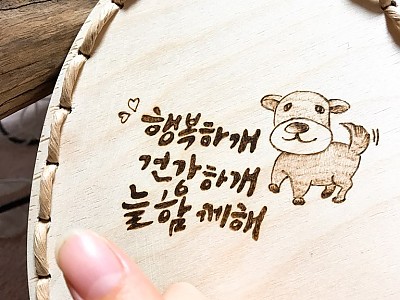 행복하개
건강하개
늘 함께해